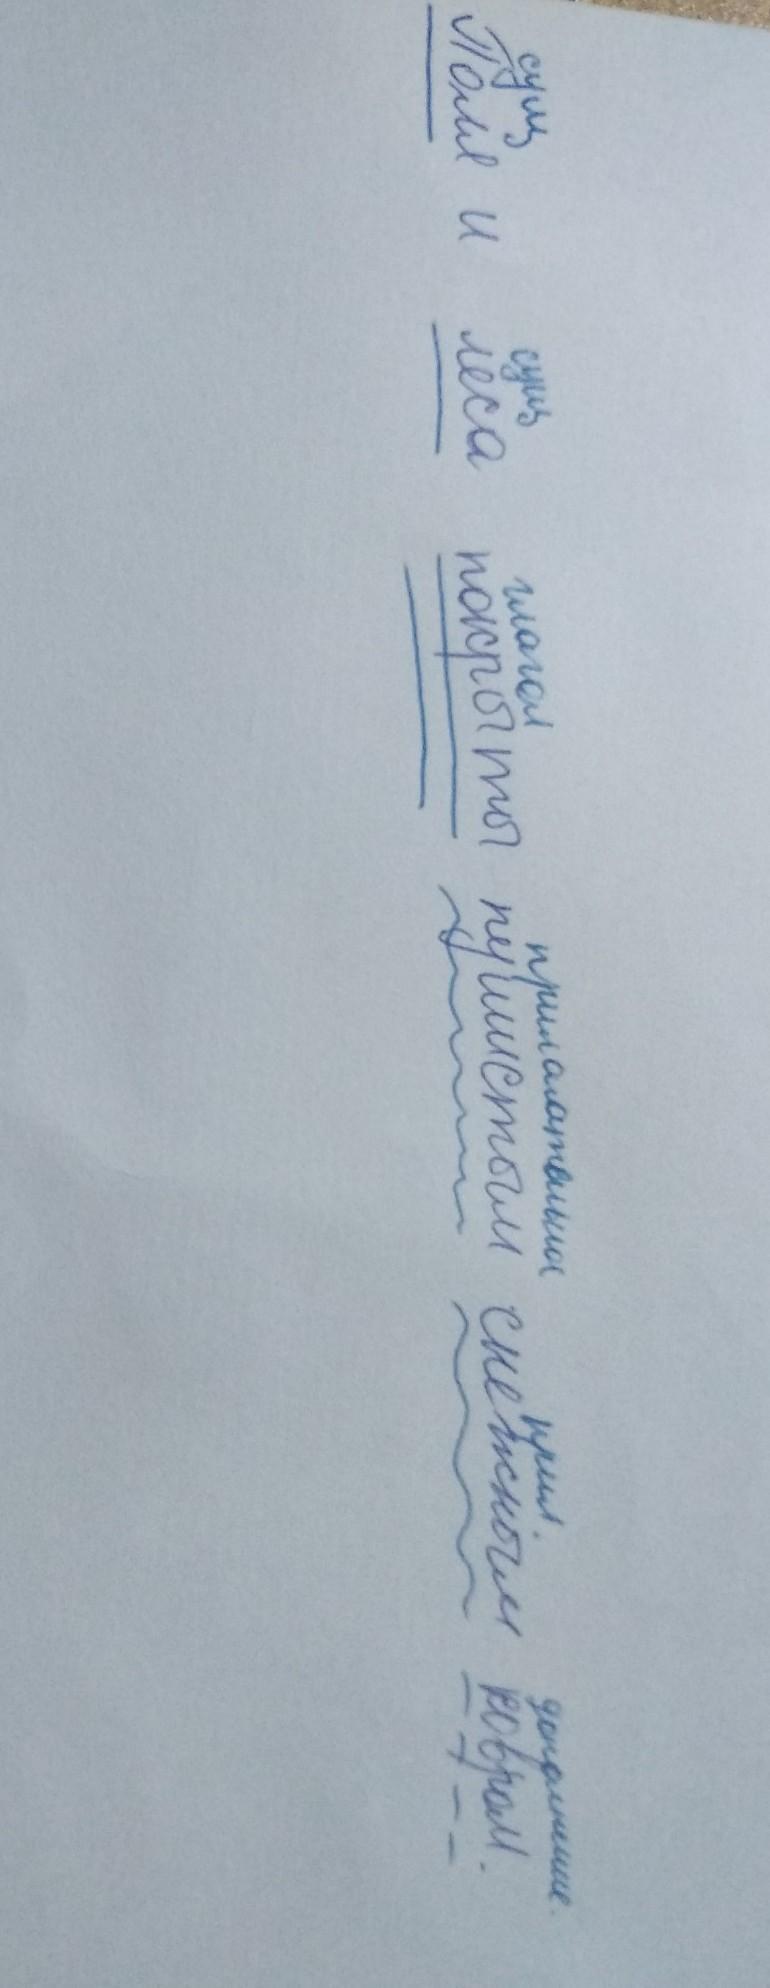 сущ сущ глагол прилагательное прил. дополнение.
Поля и леса покрыты пушистым снежным ковром.